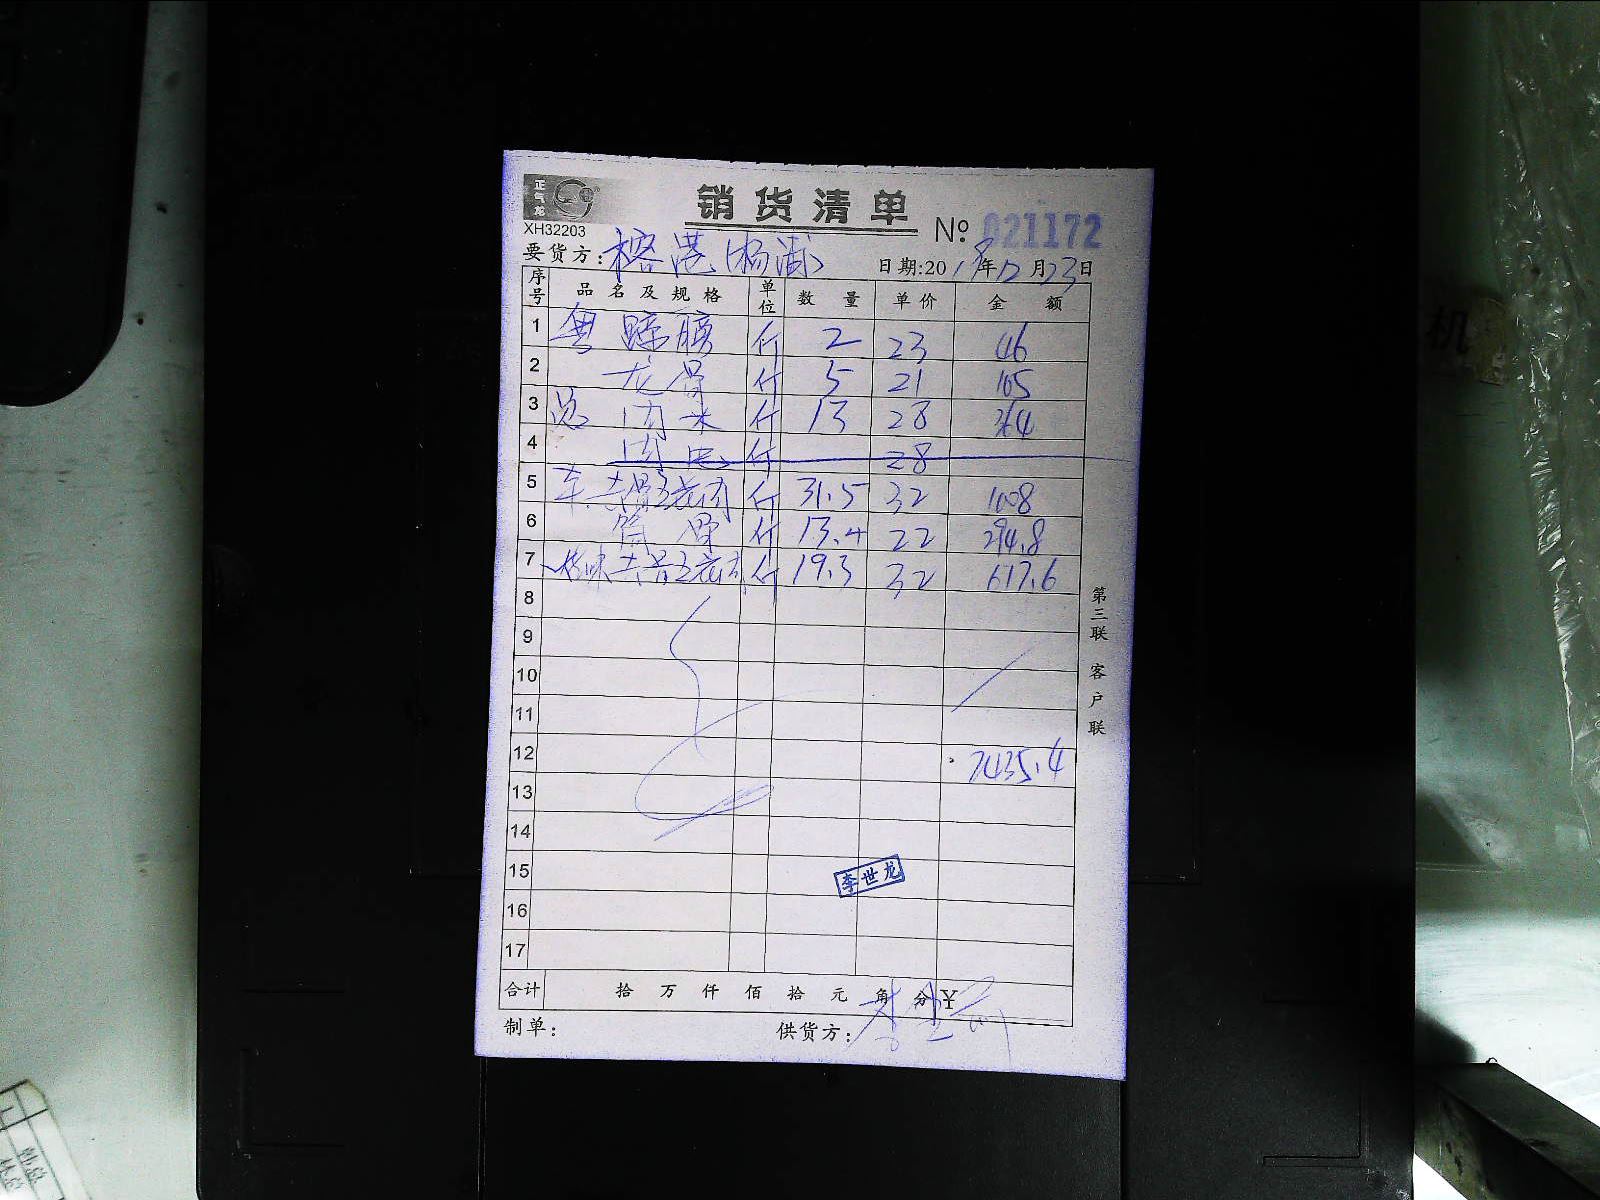 正气龙
销货清单
XH32203
№ 021172
要货方: 榕港(杨浦)
日期:2018年12月23日
序号 品名及规格 单位 数量 单价 金额
1 斤 2 23 46
2 龙骨 斤 5 21 105
3 肉 斤 13 28 364
4 肉 斤 28
5 斤 31.5 32 1008
6 筒骨 斤 13.4 22 294.8
7 斤 19.3 32 617.6
8
9
10
11
12 2435.4
13
14
15
李世龙
16
17
合计 拾 万 仟 佰 拾 元 角 分 ¥
制单: 供货方:
第三联 客户联
机